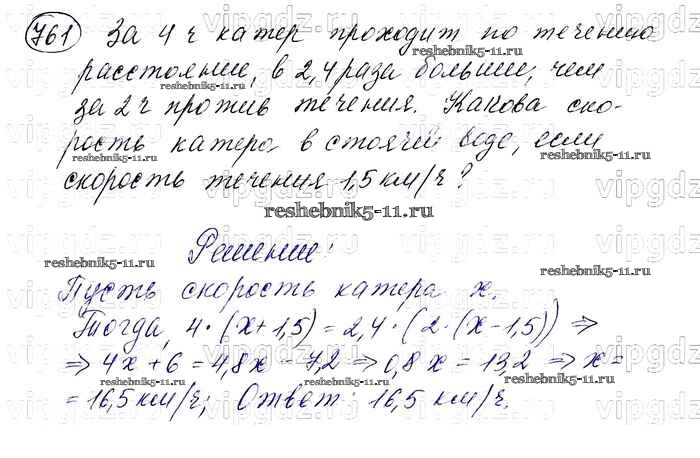 761 За 4 ч катер проходит по течению
расстояние, в 2,4 раза больше, чем
за 2 ч против течения. Какова ско-
рость катера в стоячей воде, если
скорость течения 1,5 км/ч?
reshebnik5-11.ru
Решение:
Пусть скорость катера x.
Тогда, 4·(x+1,5) = 2,4·(2·(x-1,5)) ⇒
⇒ 4x+6 = 4,8x - 7,2 ⇒ 0,8x = 13,2 ⇒ x =
= 16,5 км/ч; Ответ: 16,5 км/ч.
vipgdz